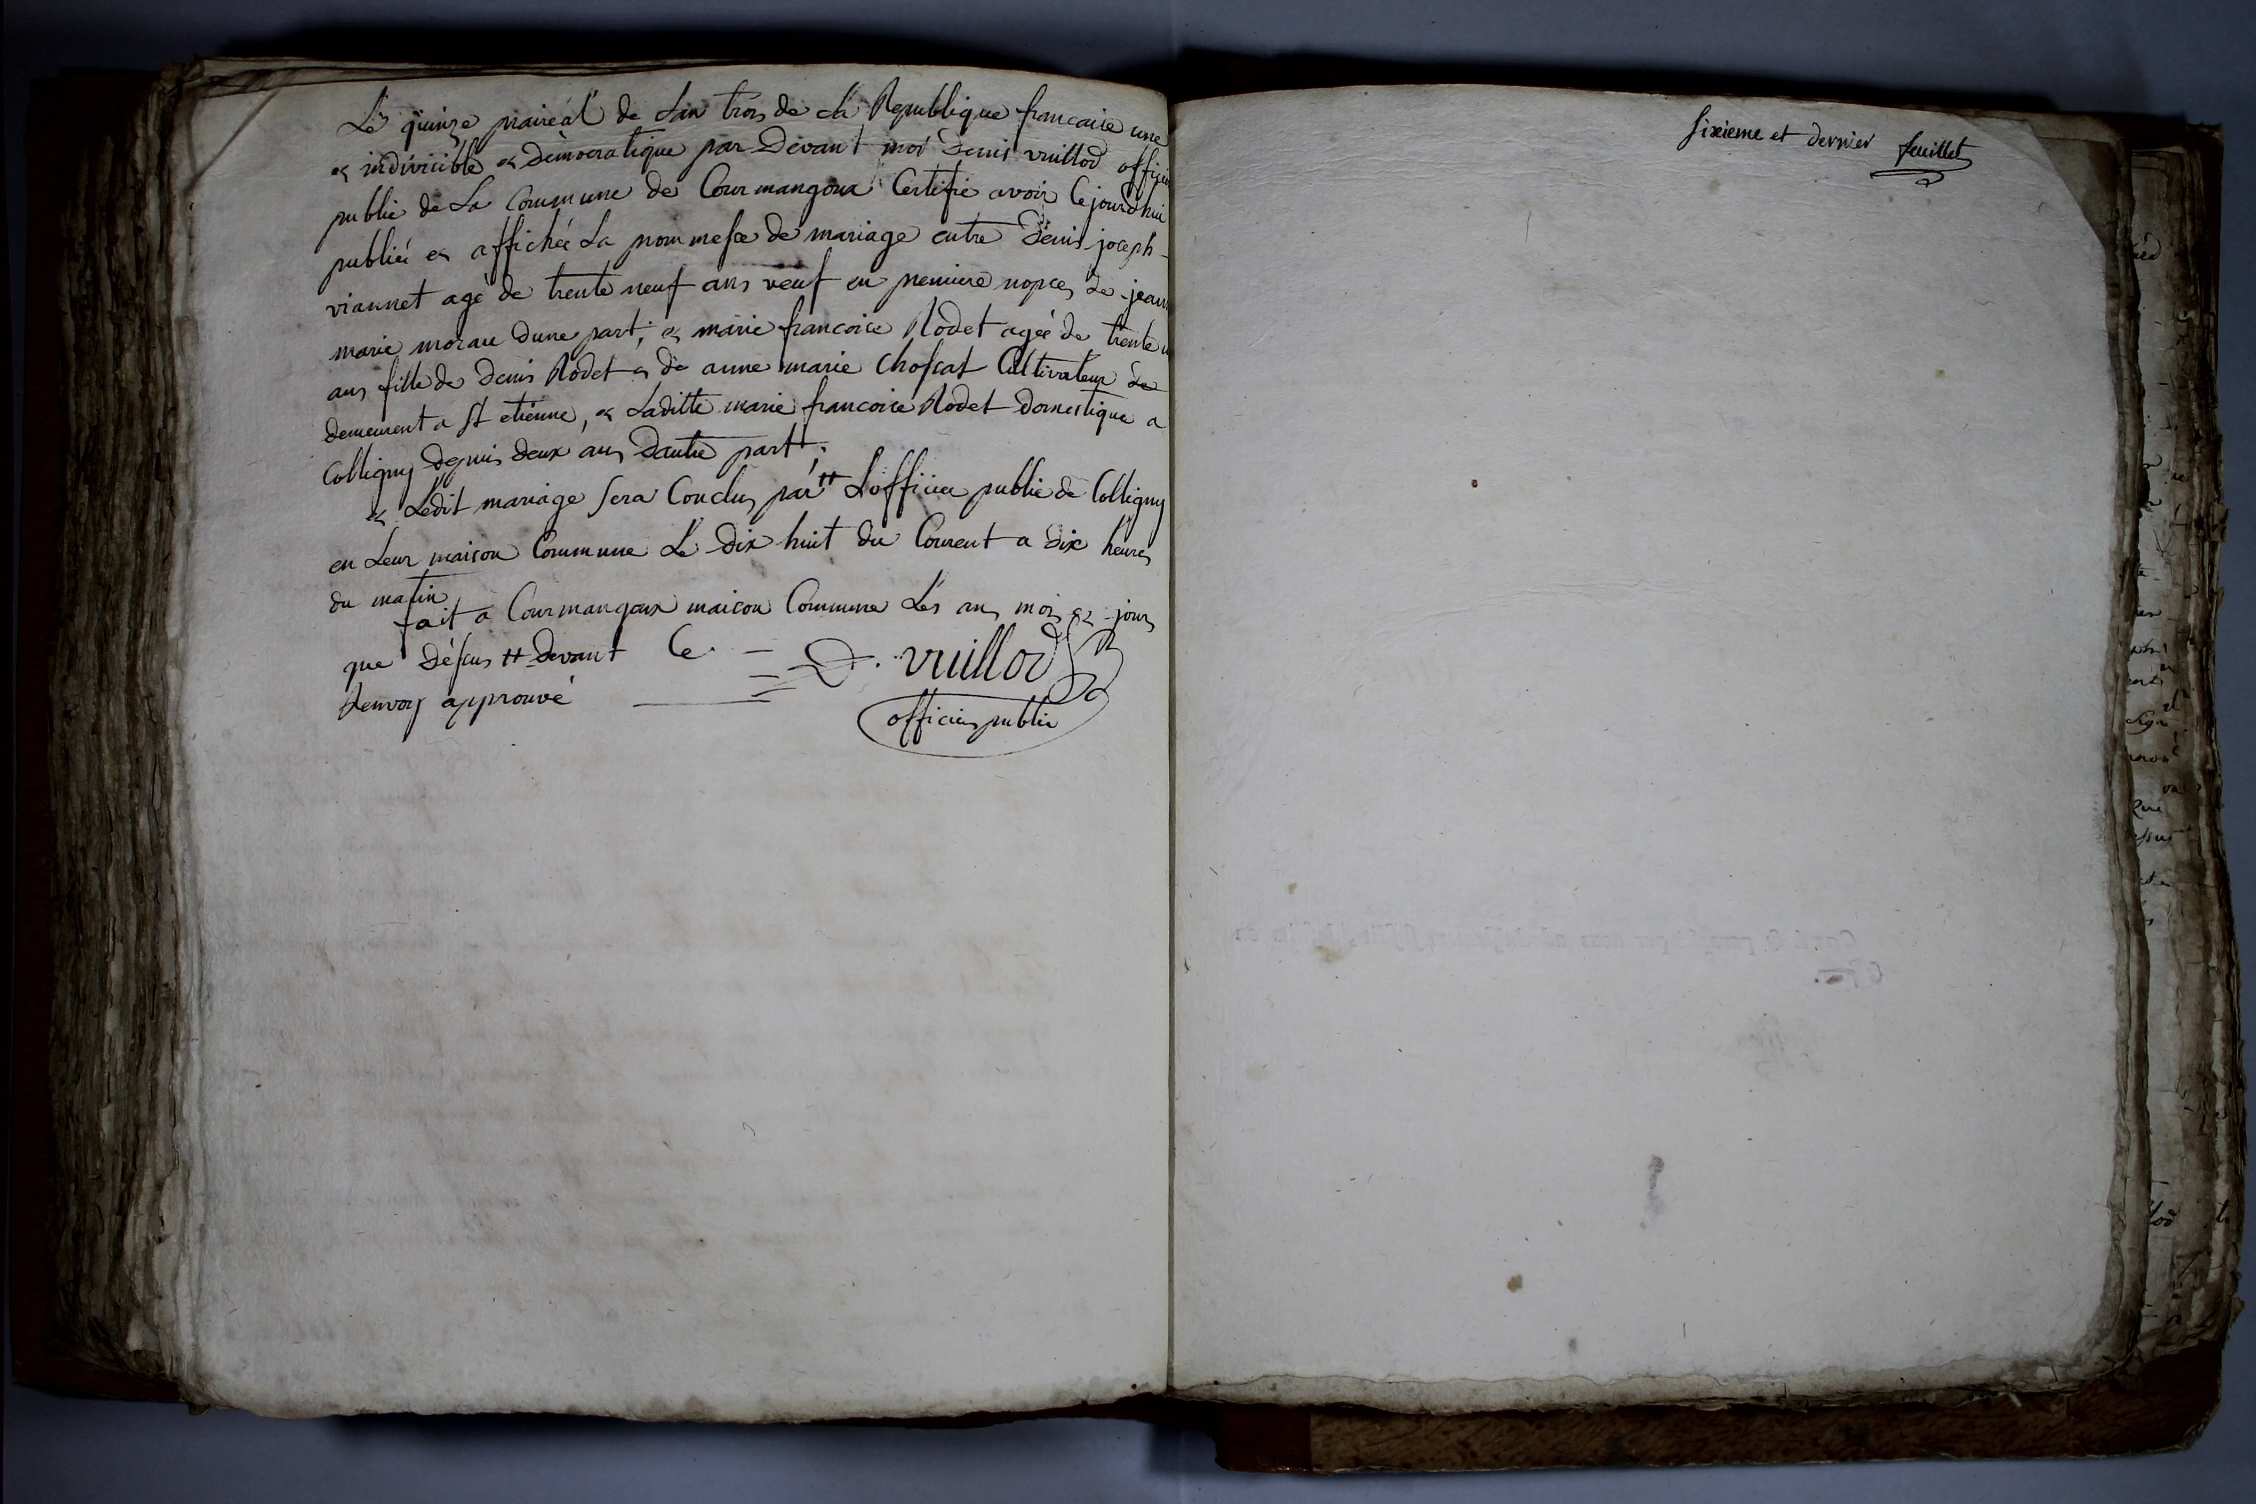 Le quinze prairéal de Lan trois de la Republique francaise une
et indivicible et démocratique par devant moi denis vuillod officier
public de La Commune de Courmangoux Certifie avoir Cejourdhui
publié et affichée La prommesse de mariage entre denis joseph
viannet agé de trente neuf ans veuf en premiere nopces de jeann
marie morau dune part, et marie francoise Rodet agée de trente
ans fille de denis Rodet et de anne marie Choscat Cultivateur de
demeurent a st etienne, et Laditte marie francoise Rodet domestique a
Colligny depuis deux ans dautre part.
et Ledit mariage sera Conclus par ++ Lofficier public de Colligny
en Leur maison Commune Le dix huit du Courent a dix heures
du matin
fait a Courmangoux maison Commune Les ans mois et jours
que dessus ++ devant Ce.
Renvoy approuvé
D. vuillod
officier public
sixieme et dernier feuillet